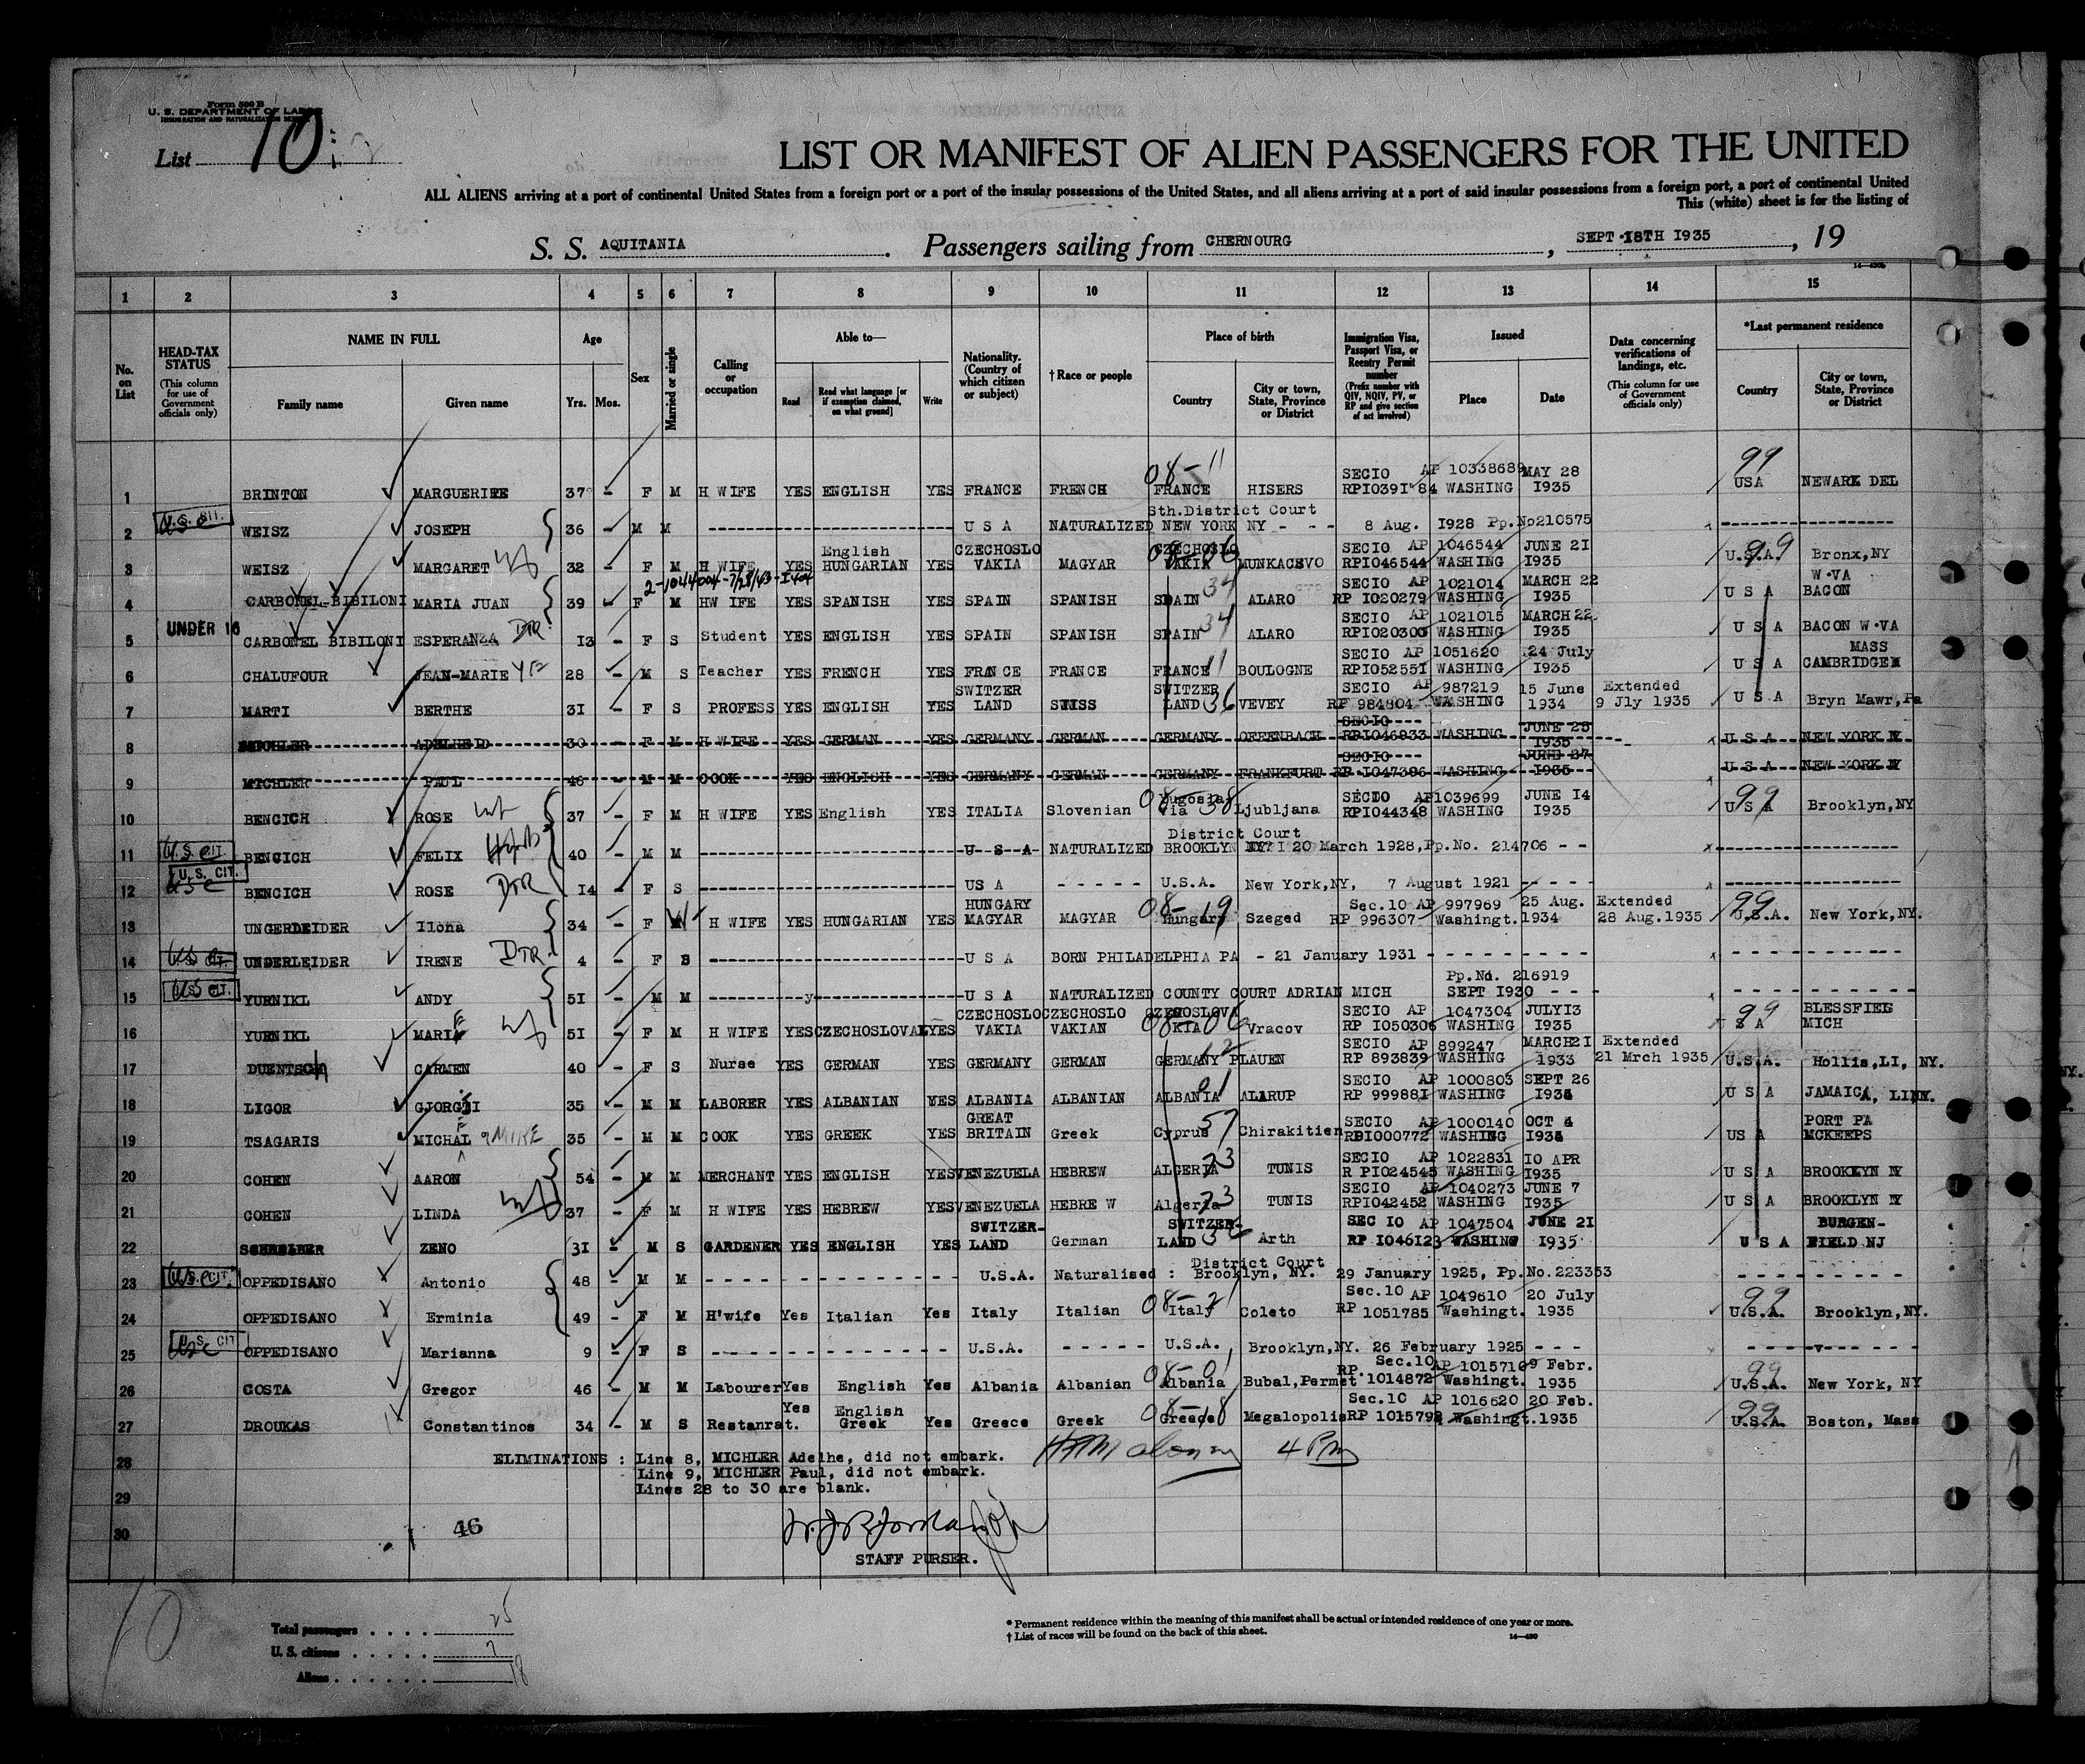 Form 500 B
U. S. DEPARTMENT OF LABOR
IMMIGRATION AND NATURALIZATION SERVICE
List 10
LIST OR MANIFEST OF ALIEN PASSENGERS FOR THE UNITED
ALL ALIENS arriving at a port of continental United States from a foreign port or a port of the insular possessions of the United States, and all aliens arriving at a port of said insular possessions from a foreign port, a port of continental United
This (white) sheet is for the listing of
S. S. AQUITANIA. Passengers sailing from CHERNOURG, SEPT 18TH I935, 19
1 2 3 4 5 6 7 8 9 10 11 12 13 14 15
No. on List
HEAD-TAX STATUS (This column for use of Government officials only)
NAME IN FULL Family name Given name
Age Yrs. Mos.
Sex
Married or single
Calling or occupation
Able to— Read Read what language [or if exemption claimed, on what ground] Write
Nationality. (Country of which citizen or subject)
†Race or people
Place of birth Country City or town, State, Province or District
Immigration Visa, Passport Visa, or Reentry Permit number (Prefix number with QIV, NQIV, PV, or RP and give section of act involved)
Issued Place Date
Data concerning verifications of landings, etc. (This column for use of Government officials only)
*Last permanent residence Country City or town, State, Province or District
1 BRINTON MARGUERITE 37 - F M H WIFE YES ENGLISH YES FRANCE FRENCH 08-11 FRANCE HISERS SECIO AP 10338689 RPIO39I 84 WASHING MAY 28 I935 99 USA NEWARK DEL
2 U.S. CIT. WEISZ JOSEPH 36 - M M U S A NATURALIZED Sth.District Court NEW YORK NY - - - 8 Aug. I928 Pp.No210575
3 WEISZ MARGARET Wf 32 - F M H WIFE YES English HUNGARIAN YES CZECHOSLO VAKIA MAGYAR CZECHOSLO VAKIA 08-06 MUNKACSVO SECIO AP 1046544 RPIO46544 WASHING JUNE 2I I935 99 U.S.A. Bronx,NY
2-1044004-7/28/43-I404
4 CARBONEL-BIBILONI MARIA JUAN 39 - F M HW IFE YES SPANISH YES SPAIN SPANISH SPAIN 34 ALARO SECIO AP 1021014 RP IO20279 WASHING MARCH 22 I935 U S A W.VA BACON
5 UNDER 16 CARBONEL BIBILONI ESPERANZA DTR I3 - F S Student YES ENGLISH YES SPAIN SPANISH SPAIN 34 ALARO SECIO AP 1021015 RPIO20300 WASHING MARCH 22 I935 U S A BACON W.VA
6 CHALUFOUR JEAN-MARIE 28 - M S Teacher YES FRENCH YES FRANCE FRANCE FRANCE 11 BOULOGNE SECIO AP 1051620 RPIO5255I WASHING 24 July I935 U S A MASS CAMBRIDGE
7 MARTI BERTHE 3I - F S PROFESS YES ENGLISH YES SWITZER LAND SWISS SWITZER LAND 36 VEVEY SECIO AP 987219 RP 984804 WASHING 15 June 1934 Extended 9 Jly 1935 U S A Bryn Mawr,Pa
8 MICHLER ADELHEID 30 - F M H WIFE YES GERMAN YES GERMANY GERMAN GERMANY OFFENBACH SECIO RPIO46933 WASHING JUNE 25 I935 U S A NEW YORK N
9 MICHLER PAUL 46 - M M COOK YES ENGLISH YES GERMANY GERMAN GERMANY FRANKFURT SECIO RP IO47396 WASHING JUNE 27 I935 U S A NEW YORK N
10 BENCICH ROSE Wf 37 - F M H WIFE YES English YES ITALIA Slovenian 08-38 Yugoslavia Ljubljana SECIO AP1039699 RPIO44348 WASHING JUNE I4 I935 99 U S A Brooklyn,NY
11 U.S. CIT. BENCICH FELIX HusB 40 - M M U S A NATURALIZED District Court BROOKLYN NY 20 March 1928,Pp.No. 214706 - -
12 U.S. CIT. BENCICH ROSE DTR I4 - F S US A - - - - - U.S.A. New York,NY, 7 August 1921 - - - -
13 UNGERLEIDER Ilona 34 - F W H WIFE YES HUNGARIAN YES HUNGARY MAGYAR MAGYAR 08-19 Hungary Szeged Sec.10 AP 997969 RP 996307 Washingt. 25 Aug. 1934 Extended 28 Aug.1935 99 U.S.A. New York,NY.
14 U.S. CIT. UNGERLEIDER IRENE DTR. 4 - F S U S A BORN PHILADELPHIA PA - 21 January 1931 - - - - - - - -
15 U.S. CIT. YURNIKL ANDY 5I - M M y U S A NATURALIZED COUNTY COURT ADRIAN MICH Pp.No. 216919 SEPT I930 - - -
16 YURNIKL MARIE Wf 5I - F M H WIFE YES CZECHOSLOVAL YES CZECHOSLO VAKIA CZECHOSLO VAKIAN CZECHOSLOVA KIA 08-06 Vracov SECIO AP 1047304 RP IO50306 WASHING JULYI3 I935 99 U S A BLESSFIEG MICH
17 DUENTSCH CARMEN 40 - F S Nurse YES GERMAN YES GERMANY GERMAN GERMANY 12 PLAUEN SECIO AP 899247 RP 893839 WASHING MARCH2I 1933 Extended 21 Mrch 1935 U.S.A. Hollis,LI, NY.
18 LIGOR GJORGJI 35 - M M LABORER YES ALBANIAN YES ALBANIA ALBANIAN ALBANIA 01 ALARUP SECIO AP 1000803 RP 99988I WASHING SEPT 26 I934 U S A JAMAICA, LINY.
19 TSAGARIS MICHAL MIKE 35 - M M COOK YES GREEK YES GREAT BRITAIN Greek Cyprus 57 Chirakitien SECIO AP 1000140 RPI000772 WASHING OCT 4 I934 US A PORT PA MCKEEPS
20 COHEN AARON 54 - M M MERCHANT YES ENGLISH YES VENEZUELA HEBREW ALGERIA 73 TUNIS SECIO AP 1022831 R PIO24545 WASHING IO APR I935 U S A BROOKLYN NY
21 COHEN LINDA Wf 37 - F M H WIFE YES HEBREW YES VENEZUELA HEBRE W Algeria 73 TUNIS SECIO AP 1040273 RPIO42452 WASHING JUNE 7 I935 U S A BROOKLYN NY
22 SCHREIBER ZENO 3I - M S GARDENER YES ENGLISH YES SWITZER-LAND German SWITZER-LAND 36 Arth SEC IO AP 1047504 RP IO46I23 WASHING JUNE 2I I935 U S A BURGEN-FIELD NJ
23 U.S. CIT. OPPEDISANO Antonio 48 - M M - - - - - - - - - - - - - U.S.A. Naturalised : District Court Brooklyn, NY. 29 January 1925, Pp.No.223353
24 OPPEDISANO Erminia 49 - F M H'wife Yes Italian Yes Italy Italian 08-21 Italy Coleto Sec.10 AP 1049610 RP 1051785 Washingt. 20 July 1935 99 U.S.A. Brooklyn,NY.
25 U.S. CIT OPPEDISANO Marianna 9 - F S - - - - - - - - - - - - - U.S.A. - - - - - U.S.A. Brooklyn,NY. 26 February 1925 - - -
26 COSTA Gregor 46 - M M Labourer Yes English Yes Albania Albanian 08-01 Albania Bubal,Permet Sec.10 AP 1015710 RP. 1014872 Washingt. 9 Febr. 1935 99 U.S.A. New York, NY
27 DROUKAS Constantinos 34 - M S Restanrat. Yes English Greek Yes Greece Greek 08-18 Greece Megalopolis Sec.10 AP 1016620 RP 1015798 Washingt. 20 Feb. 1935 99 U.S.A. Boston, Mass
28 ELIMINATIONS : Line 8, MICHLER Adelhe, did not embark. 4 Pm
Line 9, MICHLER Paul, did not embark.
29 Lines 28 to 30 are blank.
30 46
STAFF PURSER.
10
Total passengers . . . . 25
U. S. citizens . . . . . 7
Aliens . . . . . . . 18
* Permanent residence within the meaning of this manifest shall be actual or intended residence of one year or more.
† List of races will be found on the back of this sheet.
14—430